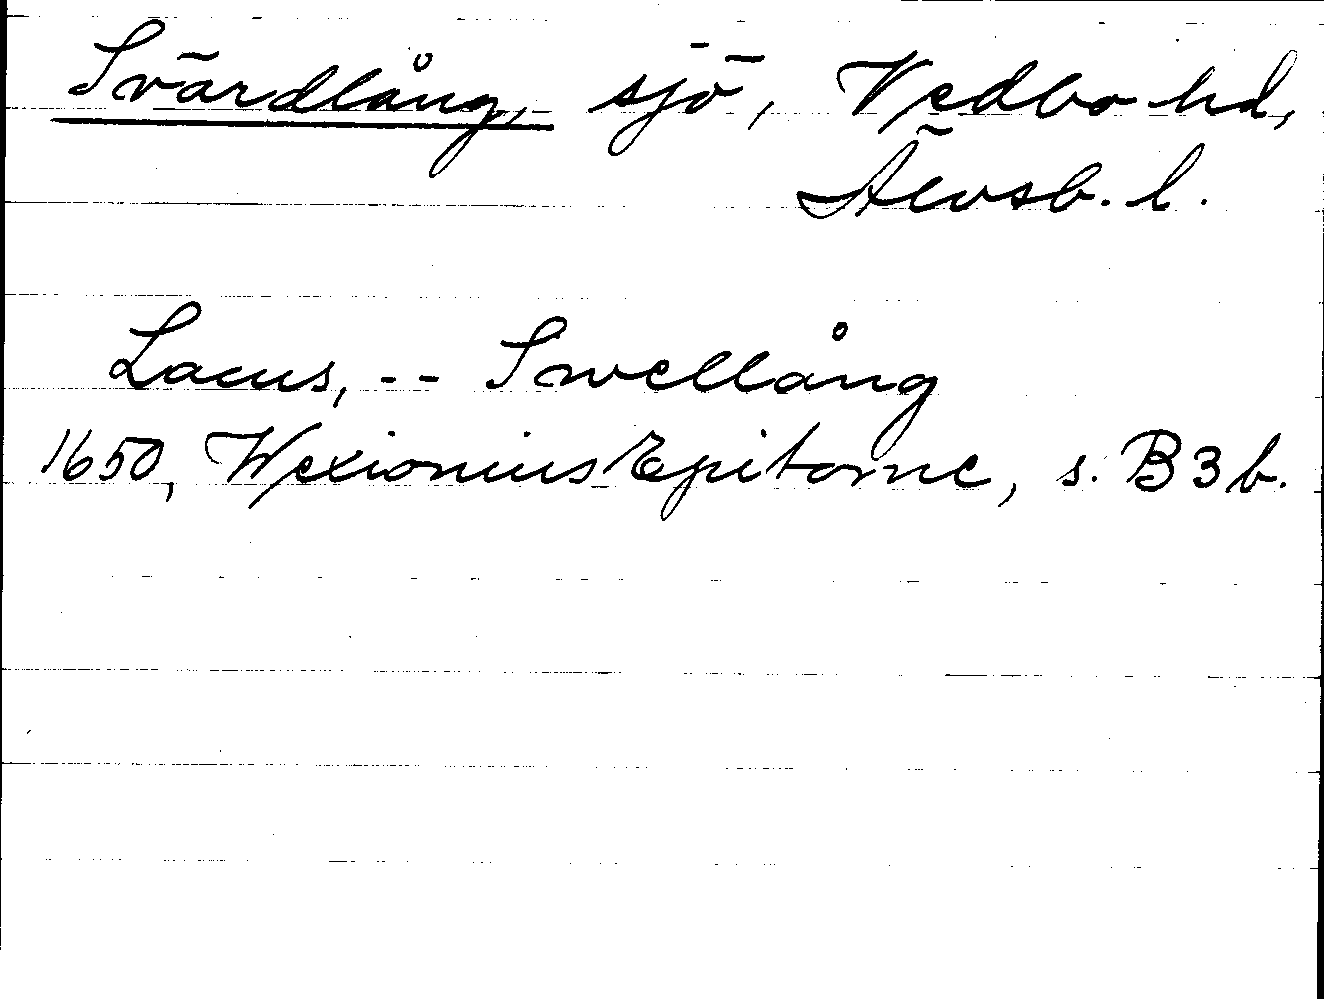 Svärdlång, sjö, Vedbo hd,
Älvsb. l.
Lacus, -- Swellång
1650, Wexionius Epitome, s. B3b.